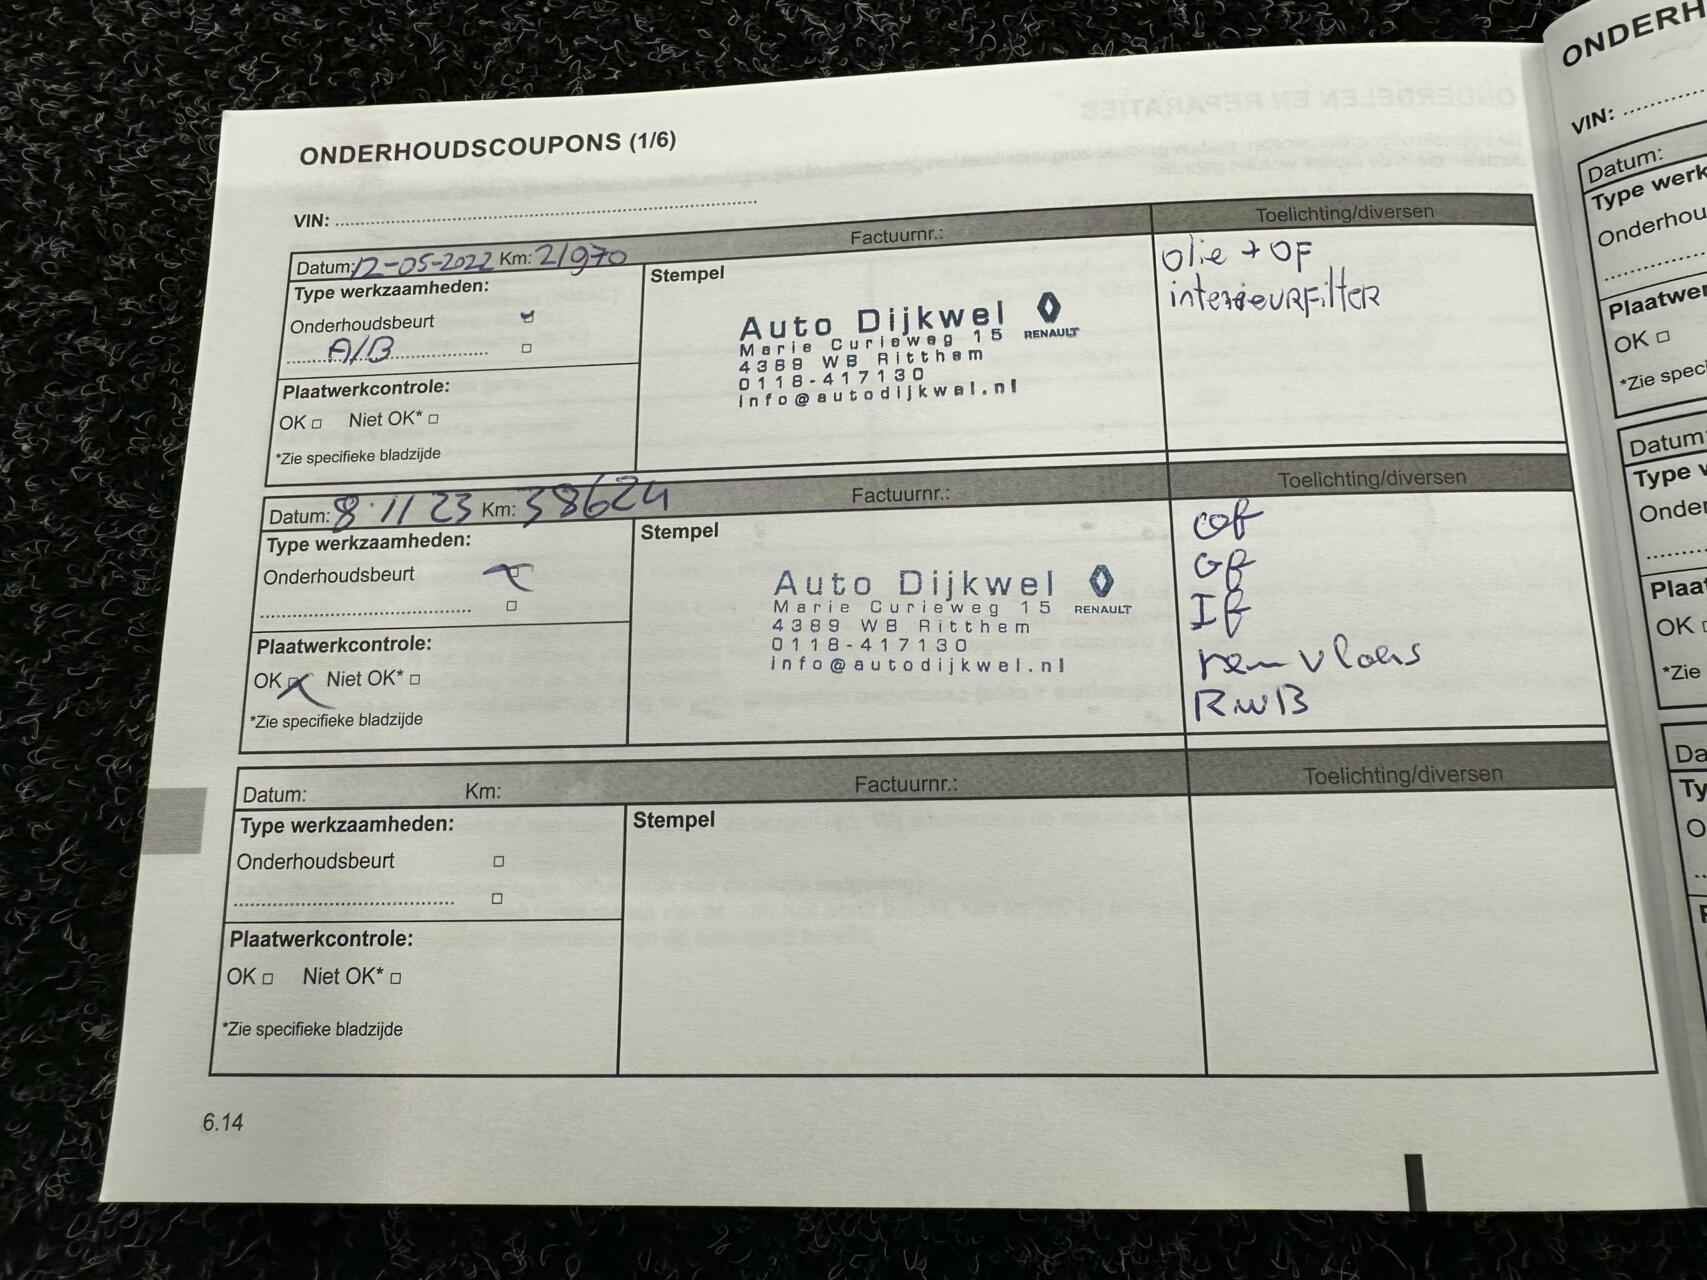 ONDERHOUDSCOUPONS (1/6)
VIN:
Datum: 12-05-2022 Km: 21970 Factuurnr.: Toelichting/diversen
Type werkzaamheden:
Onderhoudsbeurt
A/B
Plaatwerkcontrole:
OK Niet OK*
*Zie specifieke bladzijde
Stempel
Auto Dijkwel RENAULT
Marie Curieweg 15
4389 WB Ritthem
0118-417130
info@autodijkwel.nl
olie + OF
interieurFilter
Datum: 8-11 23 Km: 38624 Factuurnr.: Toelichting/diversen
Type werkzaamheden:
Onderhoudsbeurt
Plaatwerkcontrole:
OK Niet OK*
*Zie specifieke bladzijde
Stempel
Auto Dijkwel RENAULT
Marie Curieweg 15
4389 WB Ritthem
0118-417130
info@autodijkwel.nl
IF
rem vloeis
RWB
Datum: Km: Factuurnr.: Toelichting/diversen
Type werkzaamheden:
Onderhoudsbeurt
Plaatwerkcontrole:
OK Niet OK*
*Zie specifieke bladzijde
Stempel
6.14
ONDERH
VIN:
Datum:
Type werk
Onderhou
Plaatwer
OK
*Zie spec
Datum:
Type w
Onder
Plaat
OK
*Zie
Da
Ty
O